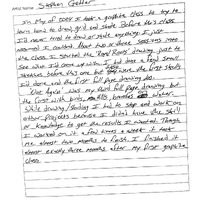 Artist Name: Stephen Geller
In May of 2004 I took a graphite class to try to
learn how to draw, grid and shade. Before this class
I'd never tried to draw or shade anything. I just
wanted I couldn't. About two or three sessions into
the class I started the "Royal Roots" drawing just to
see what I'd come up with. I had done a few small
sketches before this one but they were the first steps
I'd done, and the first full page drawing too.
"Once Again" was my third full page drawing, but
the first with birds, branches
While drawing/shading I had to stop and work on
other projects because I didn't have the skill
or knowledge to get the results I wanted. Though
I worked on it a few times a week it took
me almost two months to finish. I finished it
almost exactly three months after my first graphite
class.